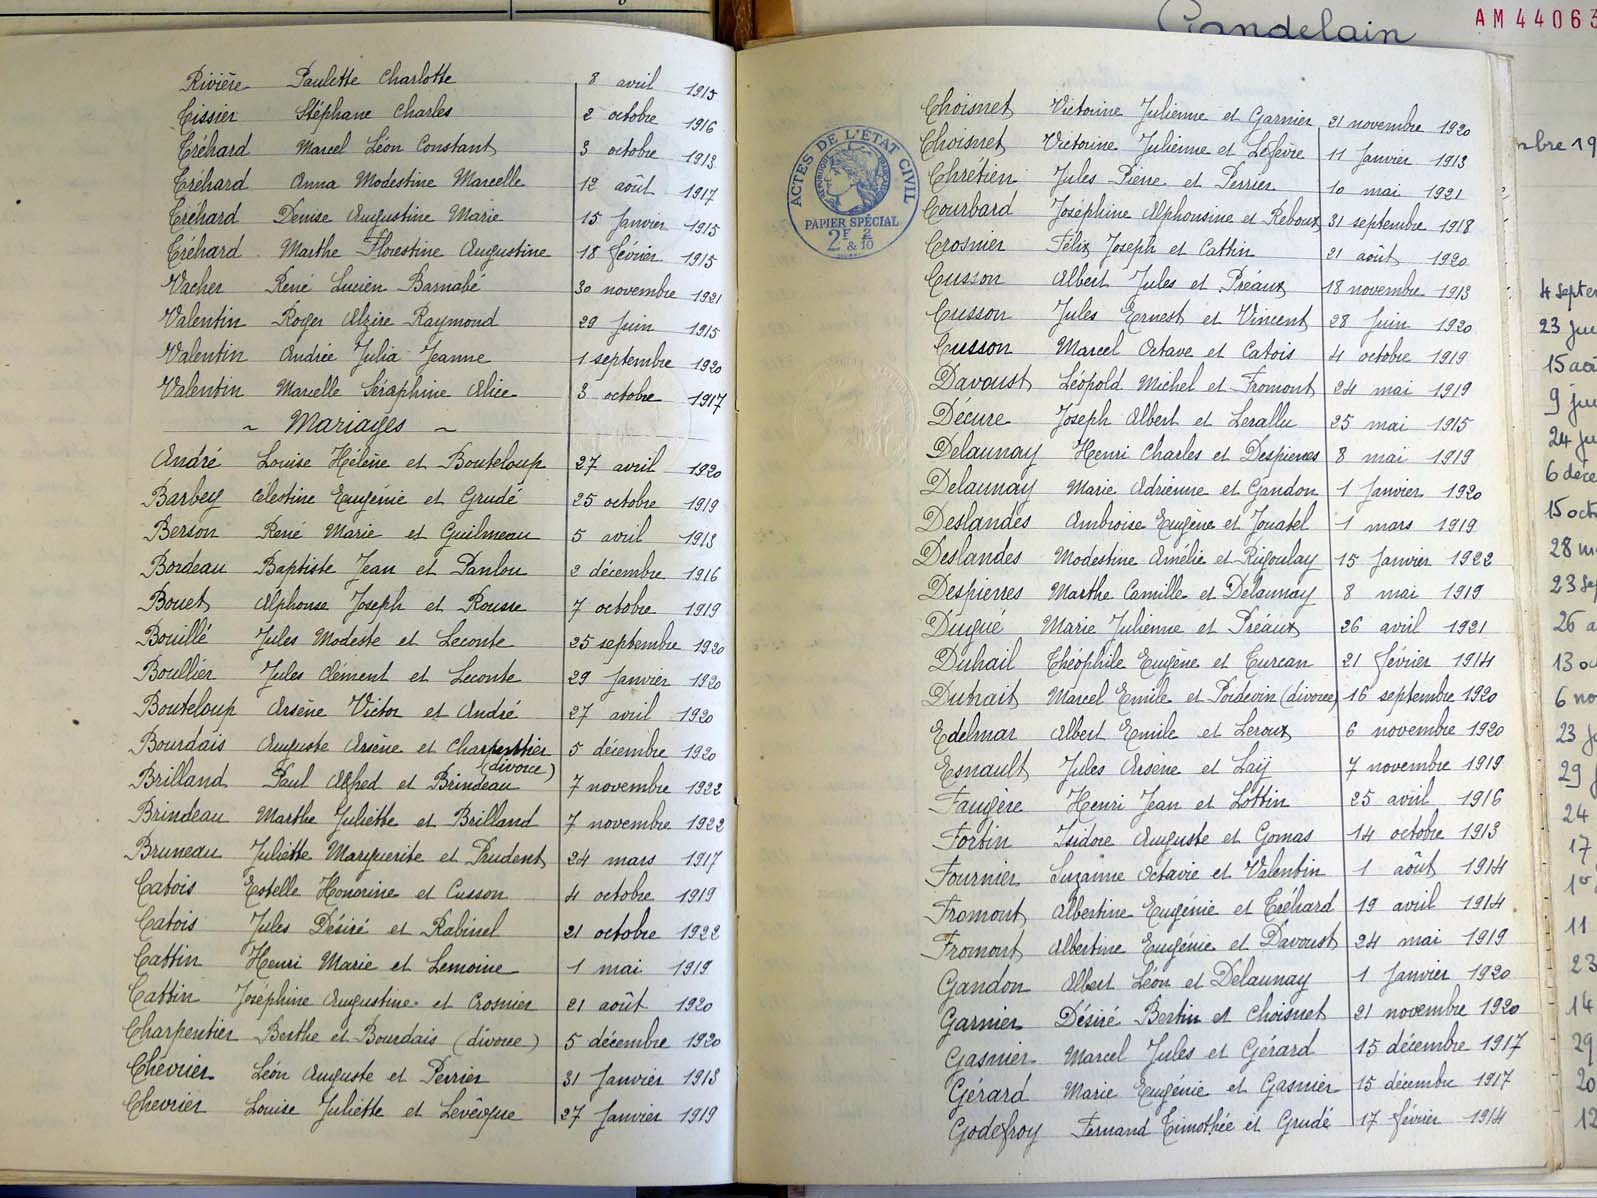 Rivière Paulette Charlotte 8 avril 1915
Tissier Stéphane Charles 2 octobre 1916
Tréhard Marcel Léon Constant 3 octobre 1913
Tréhard Anna Modestine Marcelle 12 août 1917
Tréhard Denise Augustine Marie 15 Janvier 1915
Tréhard Marthe Florestine Augustine 18 février 1915
Vacher René Lucien Barnabé 30 novembre 1921
Valentin Roger Alzire Raymond 29 Juin 1915
Valentin Andrée Julia Jeanne 1 septembre 1920
Valentin Marcelle Séraphine Alice 3 octobre 1917
~ Mariages ~
André Louise Hélène et Bouteloup 27 avril 1920
Barbey Célestine Eugénie et Grudé 25 octobre 1919
Berson René Marie et Guilmeau 5 avril 1913
Bordeau Baptiste Jean et Panlou 2 décembre 1916
Bouet Alphonse Joseph et Rousse 7 octobre 1919
Bouillé Jules Modeste et Leconte 25 septembre 1920
Boullier Jules Clément et Leconte 29 Janvier 1920
Bouteloup Arsène Victor et André 27 avril 1920
Bourdais Auguste Arsène et Charpentier 5 décembre 1920
(divorce)
Brilland Paul Alfred et Brindeau 7 novembre 1922
Brindeau Marthe Juliette et Brilland 7 novembre 1922
Bruneau Juliette Marguerite et Prudent 24 mars 1917
Catois Estelle Honorine et Cusson 4 octobre 1919
Catois Jules Désiré et Rabinel 21 octobre 1922
Cattin Henri Marie et Lemoine 1 mai 1919
Cattin Joséphine Augustine et Crosnier 21 août 1920
Charpentier Berthe et Bourdais (divorce) 5 décembre 1920
Chevrier Léon Auguste et Perrier 31 Janvier 1913
Chevrier Louise Juliette et Levêque 27 Janvier 1919
Gandelain
AM 44063
ACTES DE L'ÉTAT CIVIL
PAPIER SPÉCIAL
2F 2 & 10
Choisnet Victorine Julienne et Garnier 21 novembre 1920
Choisnet Victorine Julienne et Lefèvre 11 Janvier 1913
Chrétien Jules Pierre et Perrier 10 mai 1921
Courbard Joséphine Alphonsine et Reboux 31 septembre 1918
Crosnier Félix Joseph et Cattin 21 août 1920
Cusson Albert Jules et Préaux 18 novembre 1913
Cusson Jules Ernest et Vincent 28 Juin 1920
Cusson Marcel Octave et Catois 4 octobre 1919
Davoust Léopold Michel et Fromont 24 mai 1919
Décure Joseph Albert et Lerallu 25 mai 1915
Delaunay Henri Charles et Despierres 8 mai 1919
Delaunay Marie Adrienne et Gandon 1 Janvier 1920
Deslandes Ambroise Eugène et Jouatel 1 mars 1919
Deslandes Modestine Amélie et Rigoulay 15 Janvier 1922
Despierres Marthe Camille et Delaunay 8 mai 1919
Dugué Marie Julienne et Préaux 26 avril 1921
Duhail Théophile Eugène et Turcan 21 février 1914
Dutrait Marcel Emile et Poidevin (divorce) 16 septembre 1920
Edelmar Albert Emile et Leroux 6 novembre 1920
Esnault Jules Arsène et Laÿ 7 novembre 1919
Faugère Henri Jean et Lottin 25 avril 1916
Fortin Isidore Auguste et Gomas 14 octobre 1913
Fournier Suzanne Octavie et Valentin 1 août 1914
Fromont Albertine Eugénie et Tréhard 19 avril 1914
Fromont Albertine Eugénie et Davoust 24 mai 1919
Gandon Albert Léon et Delaunay 1 Janvier 1920
Garnier Désiré Bertin et Choisnet 21 novembre 1920
Gasnier Marcel Jules et Gérard 15 décembre 1917
Gérard Marie Eugénie et Gasnier 15 décembre 1917
Godefroy Fernand Timothée et Grudé 17 février 1914
mbre 19
4 Septe
23 ju
15 aoû
9 ju
24 ju
6 déce
15 oct
28 m
23 Sep
26 a
13 o
6 no
23 j
29
24
17
1er
11
23
14
29
20
12